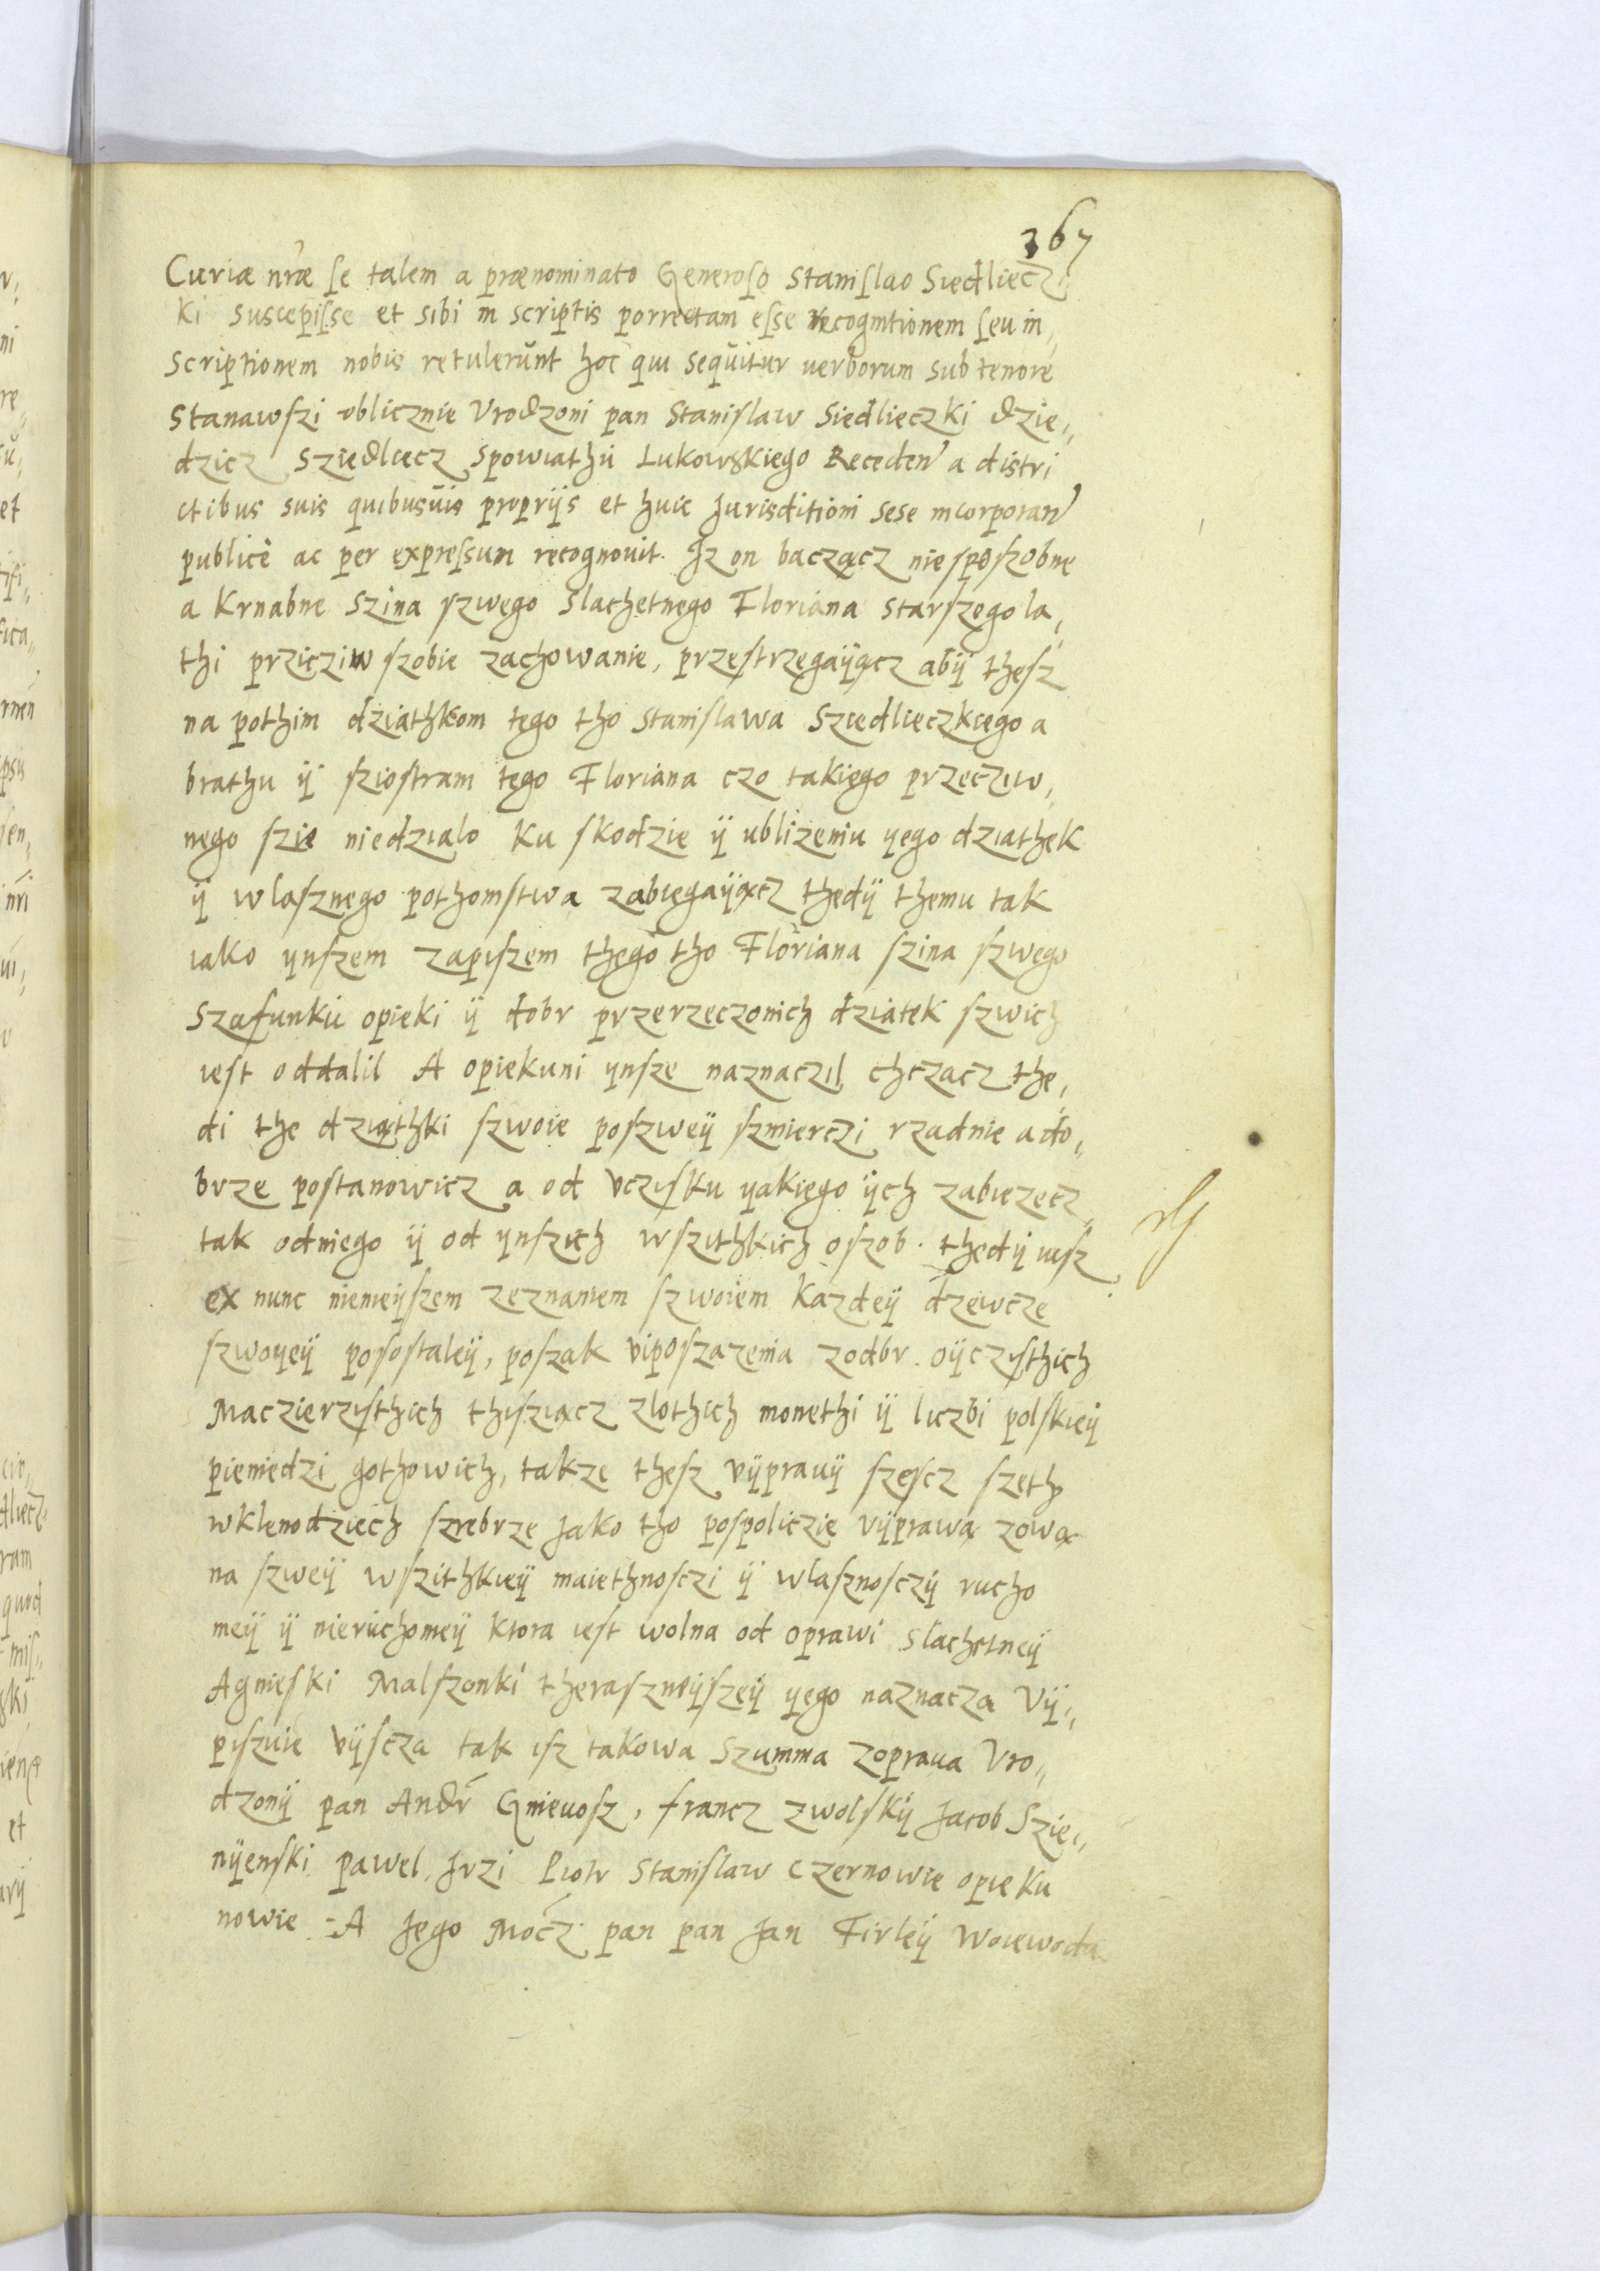 367
Curiæ nr̃æ se talem a prænominato Generoso Stanislao Siedliecz
ki suscepisse et sibi in scriptis porrectam esse recognitionem seu in„
scriptionem nobis retulerunt hoc qui sequitur uerborum sub tenore
Stanawszi oblicznie Vrodzoni pan Stanislaw Siedlieczki dzie„
dzicz Sziedlcecz Spowiathu Lukowskiego Receden̄ a distri
ctibus suis quibusuis proprijs et huic Jurisditioni sese incorporan̄
publicè ac per expressum recognouit. Jz on bacząncz niesposzobne
a Krnabne Szina szwego Slachetnego Floriana starszego la„
thi prziciziw szobie zachowanie, przestrzegaÿącz abÿ thesz
na pothim dziathkom tego tho Stanislawa Sziedlieczkiego a
brathu ÿ sziostram tego Floriana czo takiego przecziw„
nego szie niedzialo ku skodzie ÿ ublizeniu yego dziathek
ÿ wlasznego pothomstwa zabiegaÿącz thedÿ themu tak
iako ynszem zapiszem thego tho Floriana szina szwego
Szafunku opieki ÿ dobr przerzeczonich dziatek szwich
iest oddalil A opiekuni ynsze naznaczil chczacz the„
di the dziąthki szwoie poszweÿ szmierczi rzadnie a do„
brze postanowicz a od vczisku yakiego ÿch zabiezecz
tak odniego ÿ od ynszich wszithkich oszob. thedÿ iusz
ex nunc ninieÿszem zeznaniem szwoiem kazdeÿ dzewcze
szwoyeÿ pososstaleÿ, poszak viposzazenia zodbr oÿczisthich
Maczierzisthich thisziącz zlothich monethi ÿ liczbi polskieÿ
pieniedzi gothowich, takze thesz vÿprauÿ szescz szeth
wklenodziech szrebrze Jako tho pospoliczie vÿprawą zową
na szweÿ wszithkieÿ maiethnosczi ÿ wlasznosczÿ rucho
meÿ ÿ nieruchomeÿ ktora iest wolna od oprawi slachetneÿ
Agnieski Malszonki theraszneÿszeÿ yego naznacza Vÿ„
piszuie vÿscza tak isz takowa Szumma zoprawa Vro„
dzonÿ pan Andr̃ Gnieuosz, francz zwolskÿ Jacob Szie„
nÿenski pawel Jrzi Piotr Stanislaw Czernowie opieku
nowie - A Jego Mocz̃ pan pan Jan Firleÿ Woiewoda